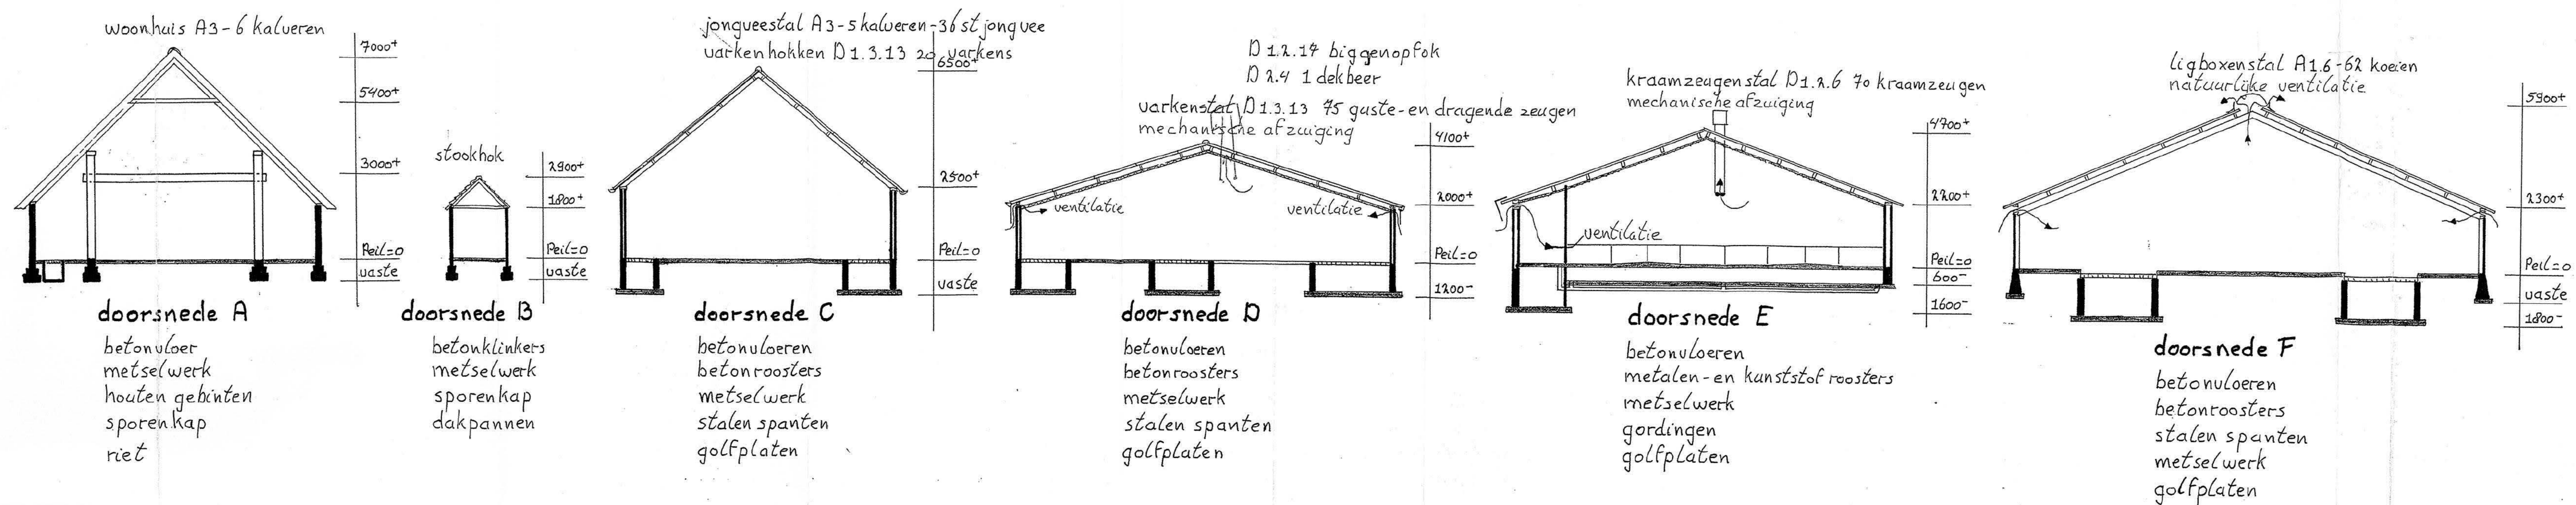 woonhuis A3-6 kalveren
7000+
5400+
3000+
Peil=0
vaste
doorsnede A
betonvloer
metselwerk
houten gebinten
sporenkap
riet
stookhok
2900+
1800+
Peil=0
vaste
doorsnede B
betonklinkers
metselwerk
sporenkap
dakpannen
jongveestal A3-5 kalveren-36 st jongvee
varkenhokken D1.3.13 20 varkens
6500+
2500+
Peil=0
vaste
doorsnede C
betonvloeren
betonroosters
metselwerk
stalen spanten
golfplaten
D 1.2.17 biggenopfok
D 2.4 1 dekbeer
varkenstal D1.3.13 75 guste-en dragende zeugen
mechanische afzuiging
4100+
2000+
Peil=0
1200-
ventilatie
ventilatie
doorsnede D
betonvloeren
betonroosters
metselwerk
stalen spanten
golfplaten
kraamzeugenstal D1.2.6 70 kraamzeugen
mechanische afzuiging
4700+
2200+
Peil=0
600-
1600-
ventilatie
doorsnede E
betonvloeren
metalen-en kunststof roosters
metselwerk
gordingen
golfplaten
ligboxenstal A1.6-62 koeien
natuurlijke ventilatie
5900+
2300+
Peil=0
vaste
1800-
doorsnede F
betonvloeren
betonroosters
stalen spanten
metselwerk
golfplaten